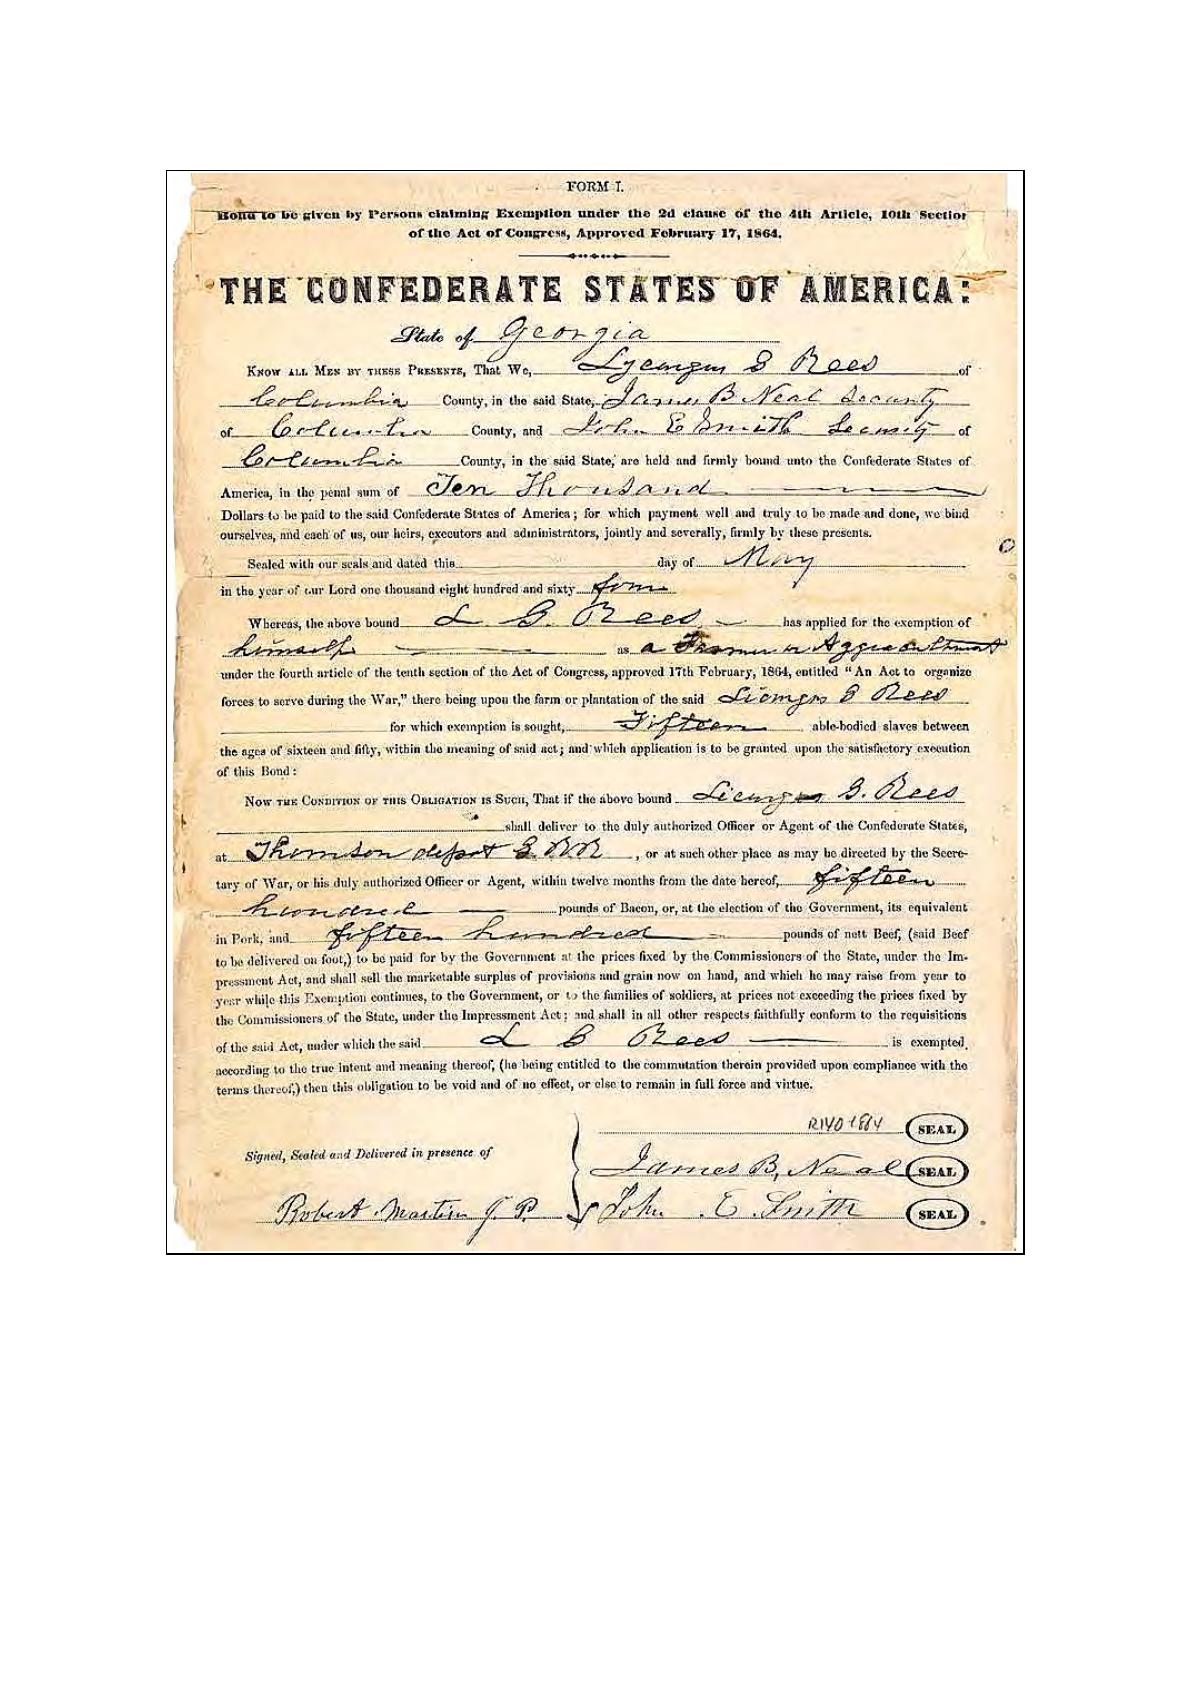 FORM I.
Bond to be given by Persons claiming Exemption under the 2d clause of the 4th Article, 10th Section
of the Act of Congress, Approved February 17, 1864.
THE CONFEDERATE STATES OF AMERICA:
State of Georgia
KNOW ALL MEN BY THESE PRESENTS, That We, Rees of
Columbia County, in the said State, James B Neal Security
of Columbia County, and John E Smith Security of
Columbia County, in the said State, are held and firmly bound unto the Confederate States of
America, in the penal sum of Ten Thousand
Dollars to be paid to the said Confederate States of America; for which payment well and truly to be made and done, we bind
ourselves, and each of us, our heirs, executors and administrators, jointly and severally, firmly by these presents.
Sealed with our seals and dated this day of May
in the year of our Lord one thousand eight hundred and sixty four
Whereas, the above bound L. G. Rees has applied for the exemption of
himself as a Farmer or
under the fourth article of the tenth section of the Act of Congress, approved 17th February, 1864, entitled "An Act to organize
forces to serve during the War," there being upon the farm or plantation of the said Rees
for which exemption is sought, Fifteen able-bodied slaves between
the ages of sixteen and fifty, within the meaning of said act; and which application is to be granted upon the satisfactory execution
of this Bond:
NOW THE CONDITION OF THIS OBLIGATION IS SUCH, That if the above bound G. Rees
shall deliver to the duly authorized Officer or Agent of the Confederate States,
at Thomson depot G. RR, or at such other place as may be directed by the Secre-
tary of War, or his duly authorized Officer or Agent, within twelve months from the date hereof, fifteen
hundred pounds of Bacon, or, at the election of the Government, its equivalent
in Pork, and fifteen hundred pounds of nett Beef, (said Beef
to be delivered on foot,) to be paid for by the Government at the prices fixed by the Commissioners of the State, under the Im-
pressment Act, and shall sell the marketable surplus of provisions and grain now on hand, and which he may raise from year to
year while this Exemption continues, to the Government, or to the families of soldiers, at prices not exceeding the prices fixed by
the Commissioners of the State, under the Impressment Act; and shall in all other respects faithfully conform to the requisitions
of the said Act, under which the said L G Rees is exempted,
according to the true intent and meaning thereof, (he being entitled to the commutation therein provided upon compliance with the
terms thereof,) then this obligation to be void and of no effect, or else to remain in full force and virtue.
SEAL
Signed, Sealed and Delivered in presence of
James B, Neal SEAL
Robert Martin J. P. John E. Smith SEAL